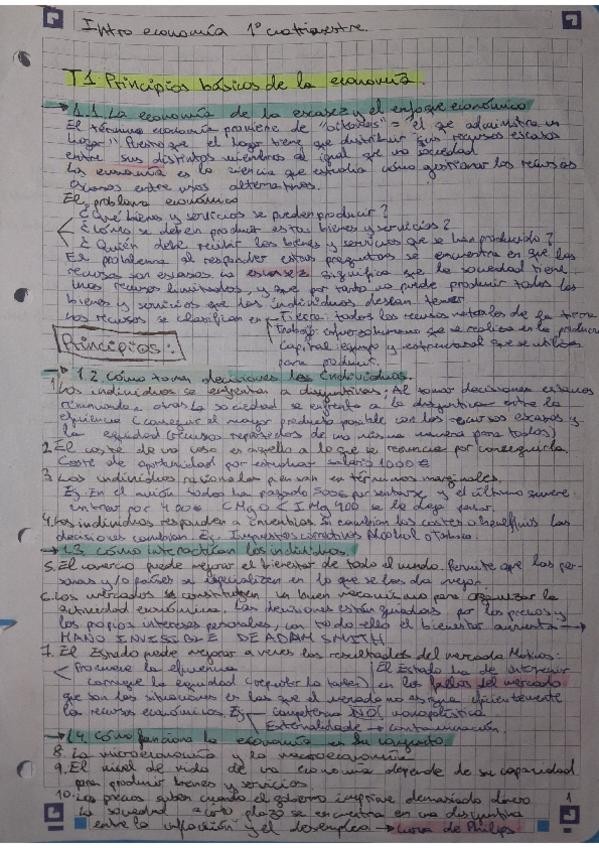 Intro economía 1º cuatrimestre.
T1 Principios básicos de la economía.
→ 1.1. La economía de la escasez y el enfoque económico
El término economía proviene de "oikonomos" = "el que administra un
hogar". Puesto que el hogar tiene que distribuir sus recursos escasos
entre sus distintos miembros al igual que una sociedad.
La economía es la ciencia que estudia cómo gestionar los recursos
escasos entre usos alternativos.
El problema económico
¿Qué bienes y servicios se pueden producir?
¿Cómo se deben producir estos bienes y servicios?
¿Quién debe recibir los bienes y servicios que se han producido?
El problema al responder estas preguntas se encuentra en que los
recursos son escasos. La escasez significa que la sociedad tiene
unos recursos limitados, y que por tanto no puede producir todos los
bienes y servicios que los individuos desean tener.
Los recursos se clasifican en Tierra: todos los recursos naturales de la tierra
Trabajo: esfuerzo humano que se realiza en la producción
Capital: equipo y estructuras que se utilizan
para producir.
Principios:
→ 1.2 Cómo toman decisiones los individuos.
1. Los individuos se enfrentan a disyuntivas; Al tomar decisiones estamos
renunciando a otras. La sociedad se enfrenta a la disyuntiva entre la
eficiencia (conseguir el mayor producto posible con los recursos escasos y
la equidad (recursos repartidos de una misma manera para todos)
2. El coste de una cosa es aquello a lo que se renuncia por conseguirla.
Coste de oportunidad por estudiar salario 1000€
3. Los individuos racionales piensan en términos marginales.
Ej. En el avión todos han pagado 500€ por sentarse y el último quiere
entrar por 400€ CMg 0 < IMg 400 se le deja pasar.
4. Los individuos responden a incentivos. Si cambian los costes o beneficios las
decisiones cambian. Ej. Impuestos correctivos Alcohol o Tabaco.
→ 1.3. Cómo interactúan los individuos.
5. El comercio puede mejorar el bienestar de todo el mundo. Permite que las per-
sonas y/o países se especialicen en lo que se les da mejor.
6. Los mercados se constituyen un buen mecanismo para organizar la
actividad económica. Las decisiones están guiadas por los precios y
los propios intereses personales, con todo ello el bienestar aumenta →
MANO INVISIBLE DE ADAM SMITH
7. El Estado puede mejorar a veces los resultados del mercado. Motivos:
Promueve la eficiencia El Estado ha de intervenir
consigue la equidad (repartir la tarta) en los fallos del mercado
que son las situaciones en las que el mercado no asigna eficientemente
los recursos económicos. Ej competencia NO! monopolística
Externalidades → contaminación.
→ 1.4. Cómo funciona la economía en su conjunto
8. La microeconomía y la macroeconomía
9. El nivel de vida de una economía depende de su capacidad
para producir bienes y servicios
10. Los precios suben cuando el gobierno imprime demasiado dinero 1
La sociedad a corto plazo se encuentra en una disyuntiva
entre la inflación y el desempleo → Curva de Philips